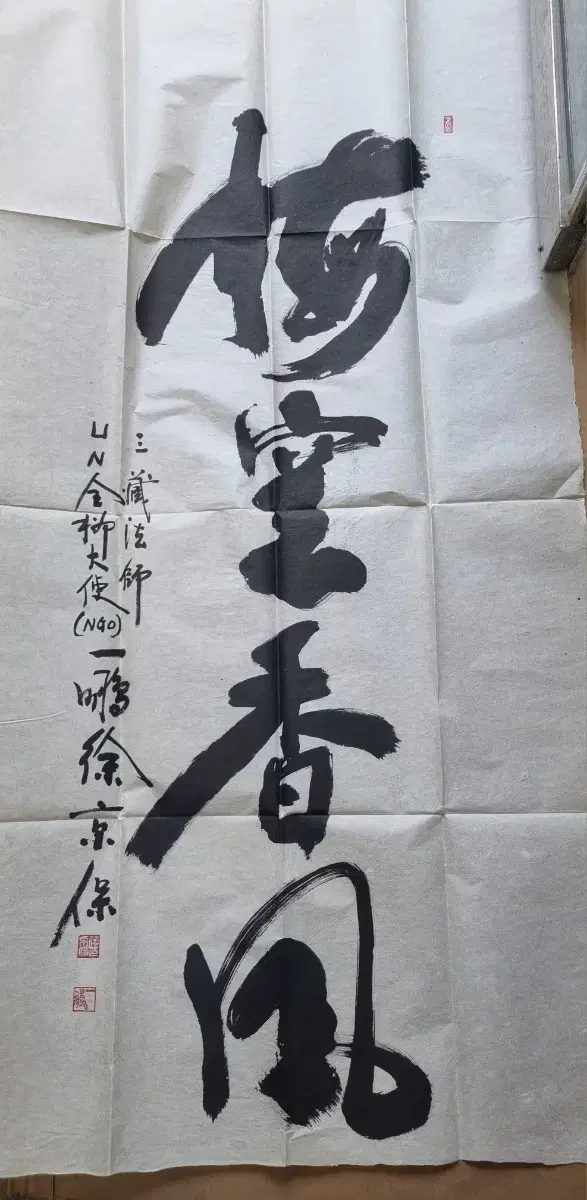 梅室香風
三藏法師
UN全大使(NGO)一鵬徐京保